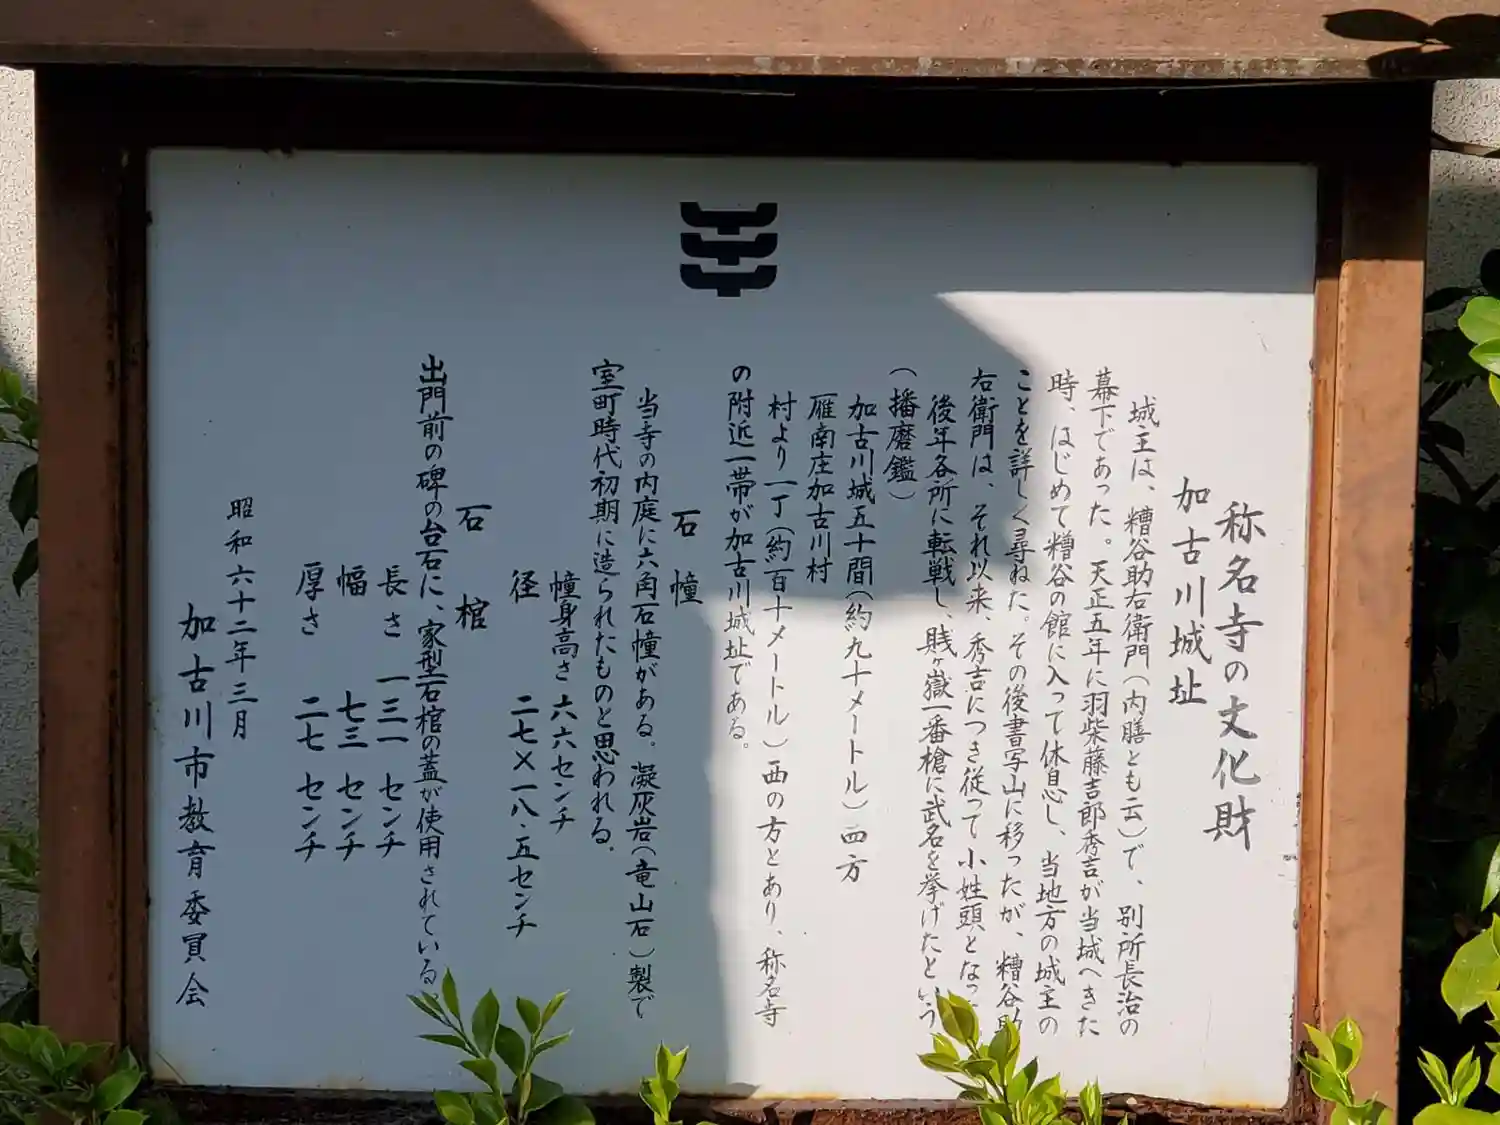 称名寺の文化財
加古川城址
城主は、糟谷助右衛門(内膳とも云)で、別所長治の
幕下であった。天正五年に羽柴藤吉郎秀吉が当城へきた
時、はじめて糟谷の館に入って休息し、当地方の城主の
ことを詳しく尋ねた。その後書写山に移ったが、糟谷助
右衛門は、それ以来、秀吉につき従って小姓頭となっ
後年各所に転戦し、賤ヶ嶽一番槍に武名を挙げたという
(播磨鑑)
加古川城五十間(約九十メートル)四方
雁南庄加古川村
村より一丁(約百十メートル)西の方とあり、称名寺
の附近一帯が加古川城址である。
石幢
当寺の内庭に六角石幢がある。凝灰岩(竜山石)製で
室町時代初期に造られたものと思われる。
幢身高さ 六六センチ
径 二七×一八・五センチ
石棺
出門前の碑の台石に、家型石棺の蓋が使用されている。
長さ 一三一 センチ
幅 七三 センチ
厚さ 二七 センチ
昭和六十二年三月
加古川市教育委員会